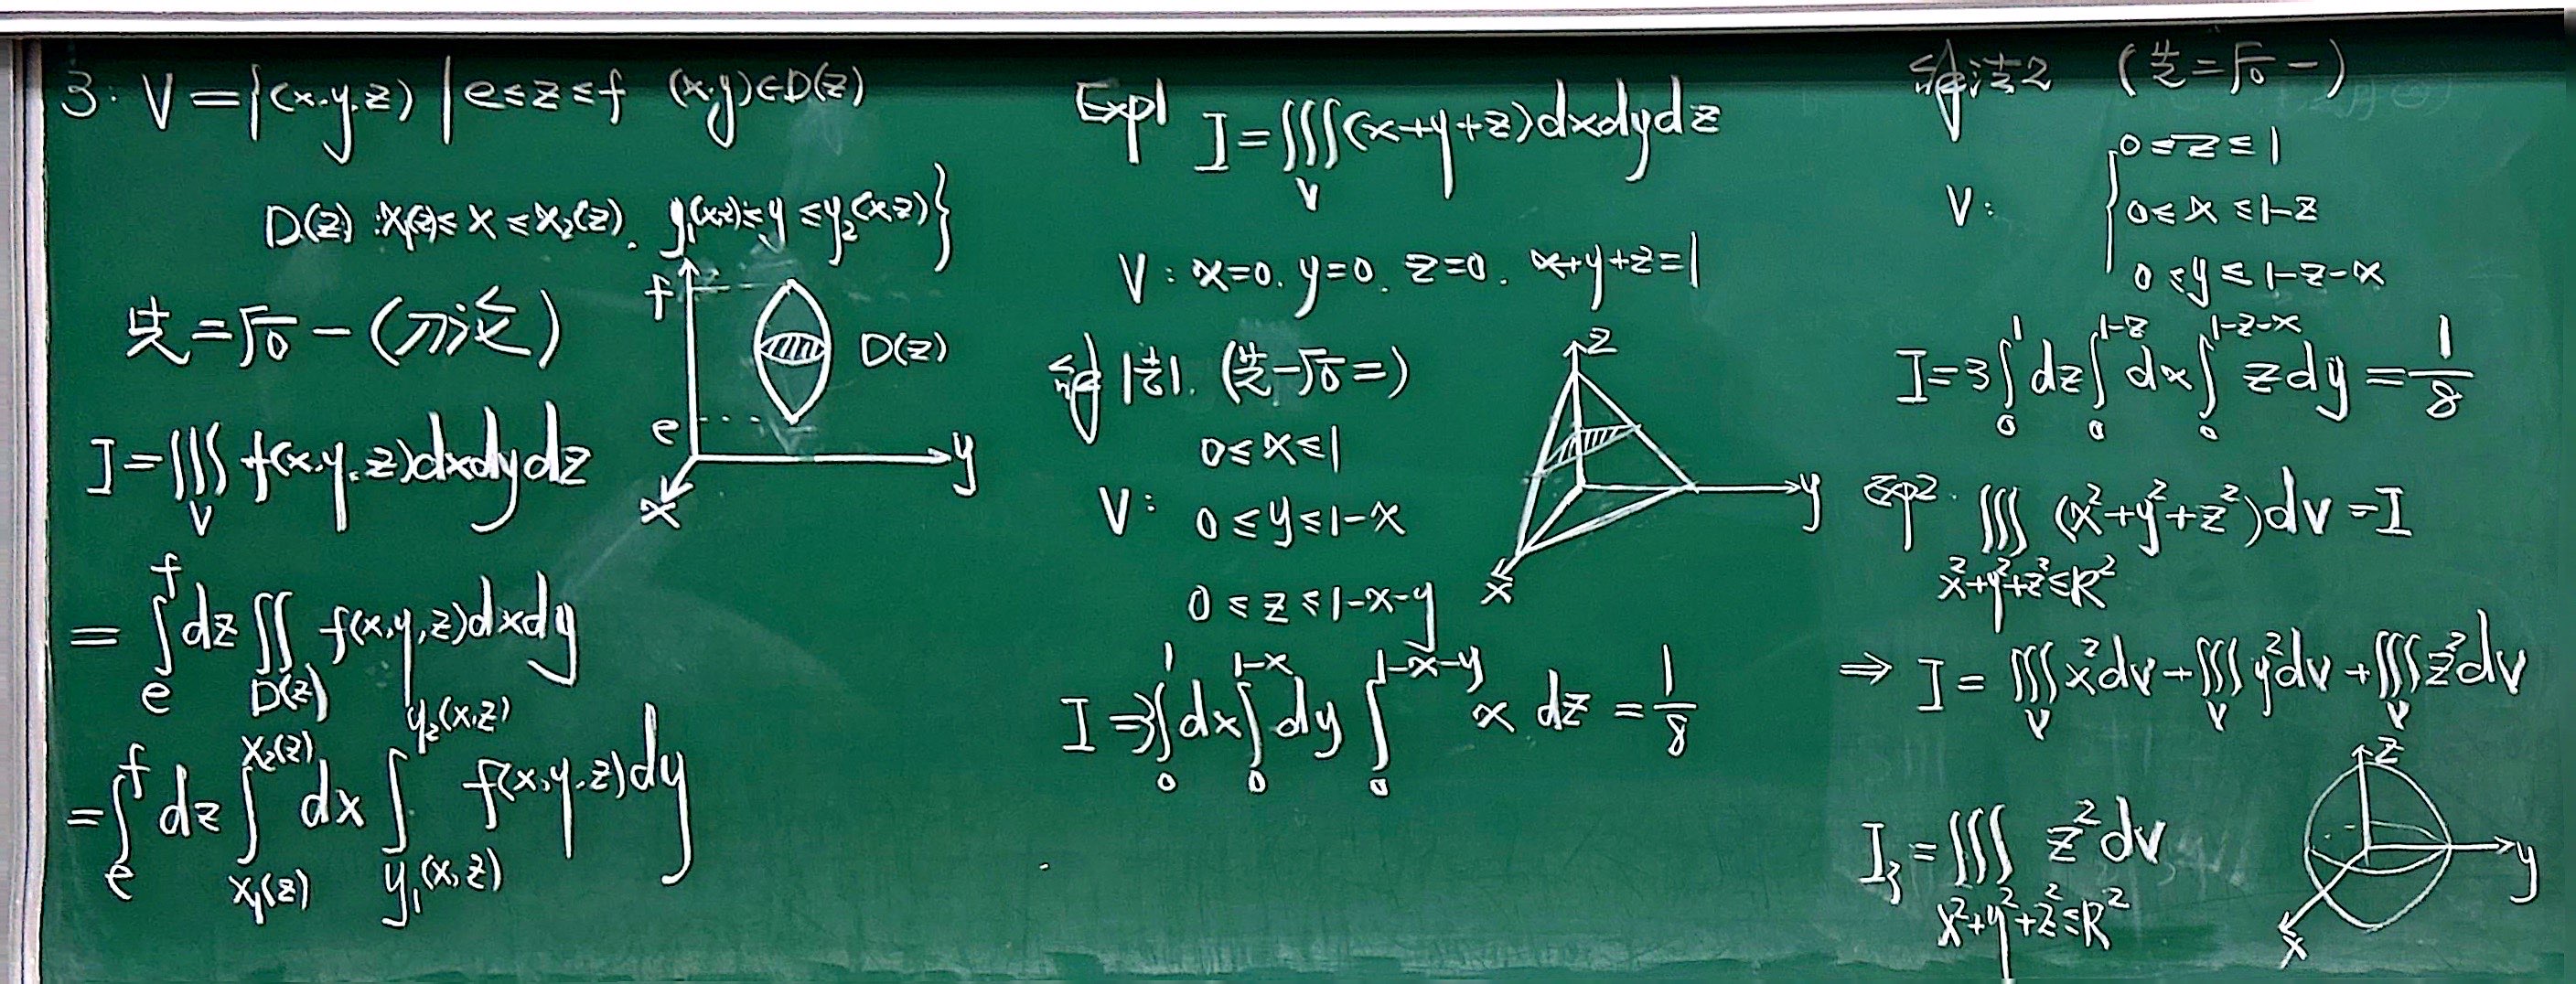 3. V={(x,y,z) | e≤z≤f (x,y)∈D(z)
D(z): x₁(z)≤x≤x₂(z), y₁(x,z)≤y≤y₂(x,z)}
先二后一(切片法)
f
D(z)
e
y
x
I=∭_V f(x,y,z)dxdydz
=∫_e^f dz ∬_{D(z)} f(x,y,z)dxdy
=∫_e^f dz ∫_{x₁(z)}^{x₂(z)} dx ∫_{y₁(x,z)}^{y₂(x,z)} f(x,y,z)dy
Exp1 I=∭_V (x+y+z)dxdydz
V: x=0, y=0, z=0, x+y+z=1
解法1. (先一后二)
V: 0≤x≤1
0≤y≤1-x
0≤z≤1-x-y
z
y
x
I=3∫_0^1 dx ∫_0^{1-x} dy ∫_0^{1-x-y} x dz = 1/8
解法2 (先二后一)
V: { 0≤z≤1
0≤x≤1-z
0≤y≤1-z-x
I=3∫_0^1 dz ∫_0^{1-z} dx ∫_0^{1-z-x} z dy = 1/8
Exp2. ∭_{x²+y²+z²≤R²} (x²+y²+z²)dv=I
⇒ I=∭_V x²dv+∭_V y²dv+∭_V z²dv
I₃=∭_{x²+y²+z²≤R²} z²dv
z
y
x